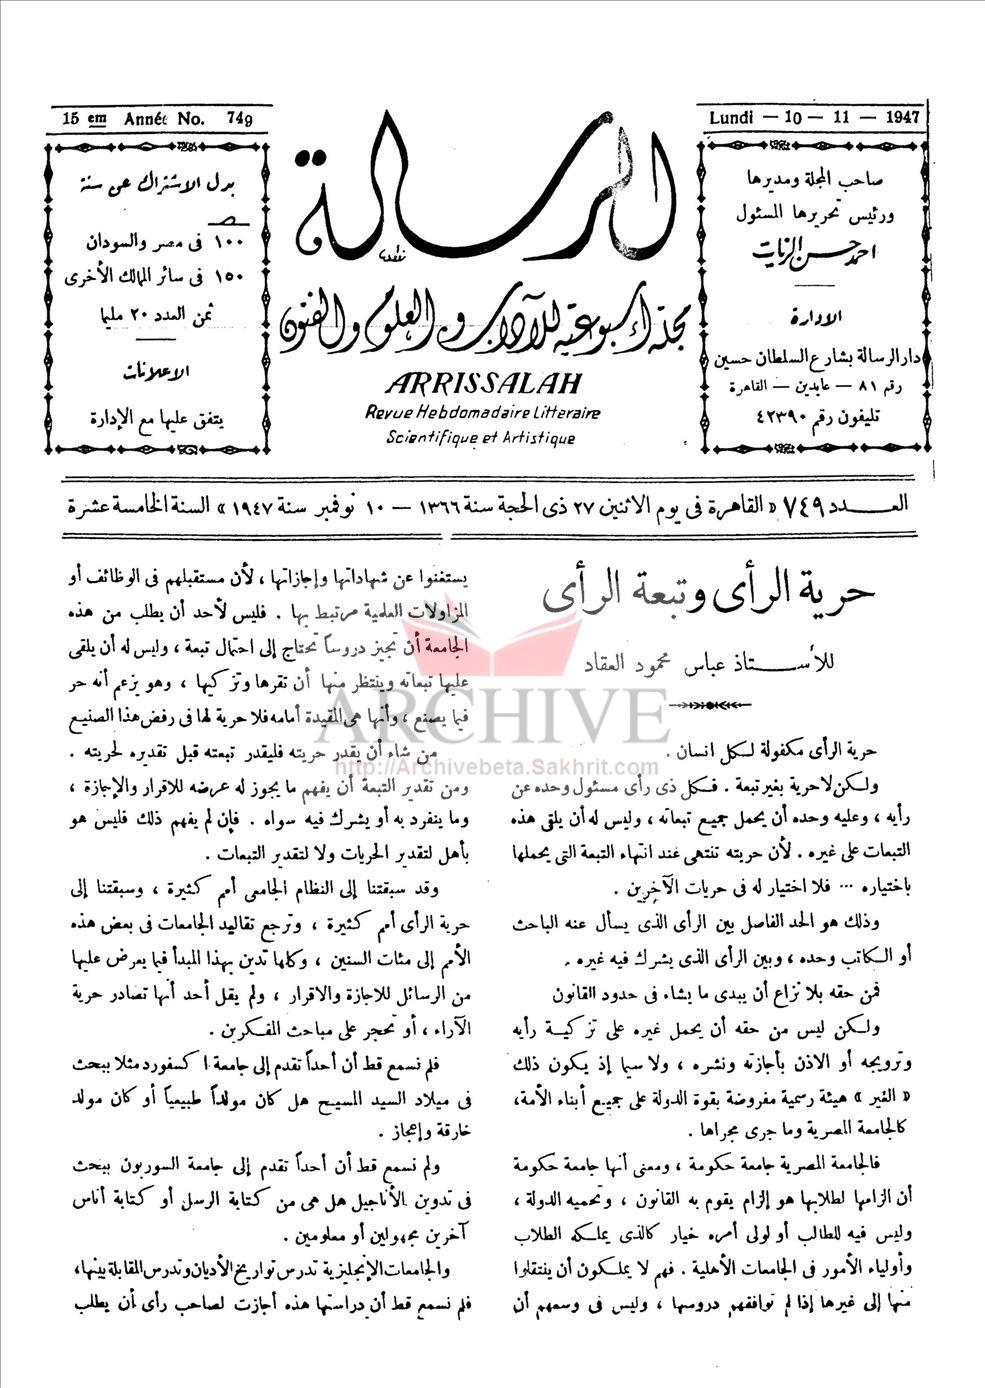 15 em Année No. 749
Lundi — 10 — 11 — 1947
بدل الاشتراك عن سنة
١٠٠ فى مصر والسودان
١٥٠ فى سائر الممالك الأخرى
ثمن العدد ٢٠ مليما
الاعلانات
يتفق عليها مع الإدارة
الرسالة
مجلة أسبوعية للآداب والعلوم والفنون
ARRISSALAH
Revue Hebdomadaire Litteraire
Scientifique et Artistique
صاحب المجلة ومديرها
ورئيس تحريرها المسئول
احمد حسن الزيات
الادارة
دار الرسالة بشارع السلطان حسين
رقم ٨١ — عابدين — القاهرة
تليفون رقم ٤٢٣٩٠
العـــدد ٧٤٩ « القاهرة فى يوم الاثنين ٢٧ ذى الحجة سنة ١٣٦٦ — ١٠ نوفمبر سنة ١٩٤٧ » السنة الخامسة عشرة
حرية الرأى وتبعة الرأى
للأستـــاذ عباس محمود العقاد
حرية الرأى مكفولة لكل انسان .
ولكن لا حرية بغير تبعة . فكل ذى رأى مسئول وحده عن
رأيه ، وعليه وحده أن يحمل جميع تبعاته ، وليس له أن يلقى هذه
التبعات على غيره . لأن حريته تنتهى عند انتهاء التبعة التى يحملها
باختياره ... فلا اختيار له فى حريات الآخرين .
وذلك هو الحد الفاصل بين الرأى الذى يسأل عنه الباحث
أو الكاتب وحده ، وبين الرأى الذى يشرك فيه غيره .
فمن حقه بلا نزاع أن يبدى ما يشاء فى حدود القانون
ولكن ليس من حقه أن يحمل غيره على تزكية رأيه
وترويجه أو الاذن بأجازته ونشره ، ولا سيما إذ يكون ذلك
« الغير » هيئة رسمية مفروضة بقوة الدولة على جميع أبناء الأمة،
كالجامعة المصرية وما جرى مجراها .
فالجامعة المصرية جامعة حكومة ، ومعنى أنها جامعة حكومة
أن الزامها لطلابها هو إلزام يقوم به القانون ، وتحميه الدولة ،
وليس فيه للطالب أو لولى أمره خيار كالذى يملكه الطلاب
وأولياء الأمور فى الجامعات الأهلية . فهم لا يملكون أن ينتقلوا
منها إلى غيرها إذا لم توافقهم دروسها ، وليس فى وسعهم أن
يستغنوا عن شهاداتها وإجازاتها ، لأن مستقبلهم فى الوظائف أو
المزاولات العلمية مرتبط بها . فليس لأحد أن يطلب من هذه
الجامعة أن تجيز دروساً تحتاج إلى احتمال تبعة ، وليس له أن يلقى
عليها تبعاته وينتظر منها أن تقرها وتزكيها ، وهو يزعم أنه حر
فيما يصنع ، وأنها هى المقيدة أمامه فلا حرية لها فى رفض هذا الصنيع
من شاء أن يقدر حريته فليقدر تبعته قبل تقديره لحريته .
ومن تقدير التبعة أن يفهم ما يجوز له عرضه للاقرار والإجازة ،
وما ينفرد به أو يشرك فيه سواه . فإن لم يفهم ذلك فليس هو
بأهل لتقدير الحريات ولا لتقدير التبعات .
وقد سبقتنا إلى النظام الجامعى أمم كثيرة ، وسبقتنا إلى
حرية الرأى أمم كثيرة ، وترجع تقاليد الجامعات فى بعض هذه
الأمم إلى مئات السنين ، وكلها تدين بهذا المبدأ فيما يعرض عليها
من الرسائل للاجازة والاقرار ، ولم يقل أحد أنها تصادر حرية
الآراء ، أو تحجر على مباحث المفكرين .
فلم نسمع قط أن أحداً تقدم إلى جامعة اكسفورد مثلا ببحث
فى ميلاد السيد المسيح هل كان مولداً طبيعياً أو كان مولد
خارقة وإعجاز .
ولم نسمع قط أن أحداً تقدم إلى جامعة السوربون ببحث
فى تدوين الأناجيل هل هى من كتابة الرسل أو كتابة أناس
آخرين مجهولين أو معلومين .
والجامعات الإنجليزية تدرس تواريخ الأديان وتدرس المقابلة بينها،
فلم نسمع قط أن دراستها هذه أجازت لصاحب رأى أن يطلب
ARCHIVE
http://Archivebeta.Sakhrit.com